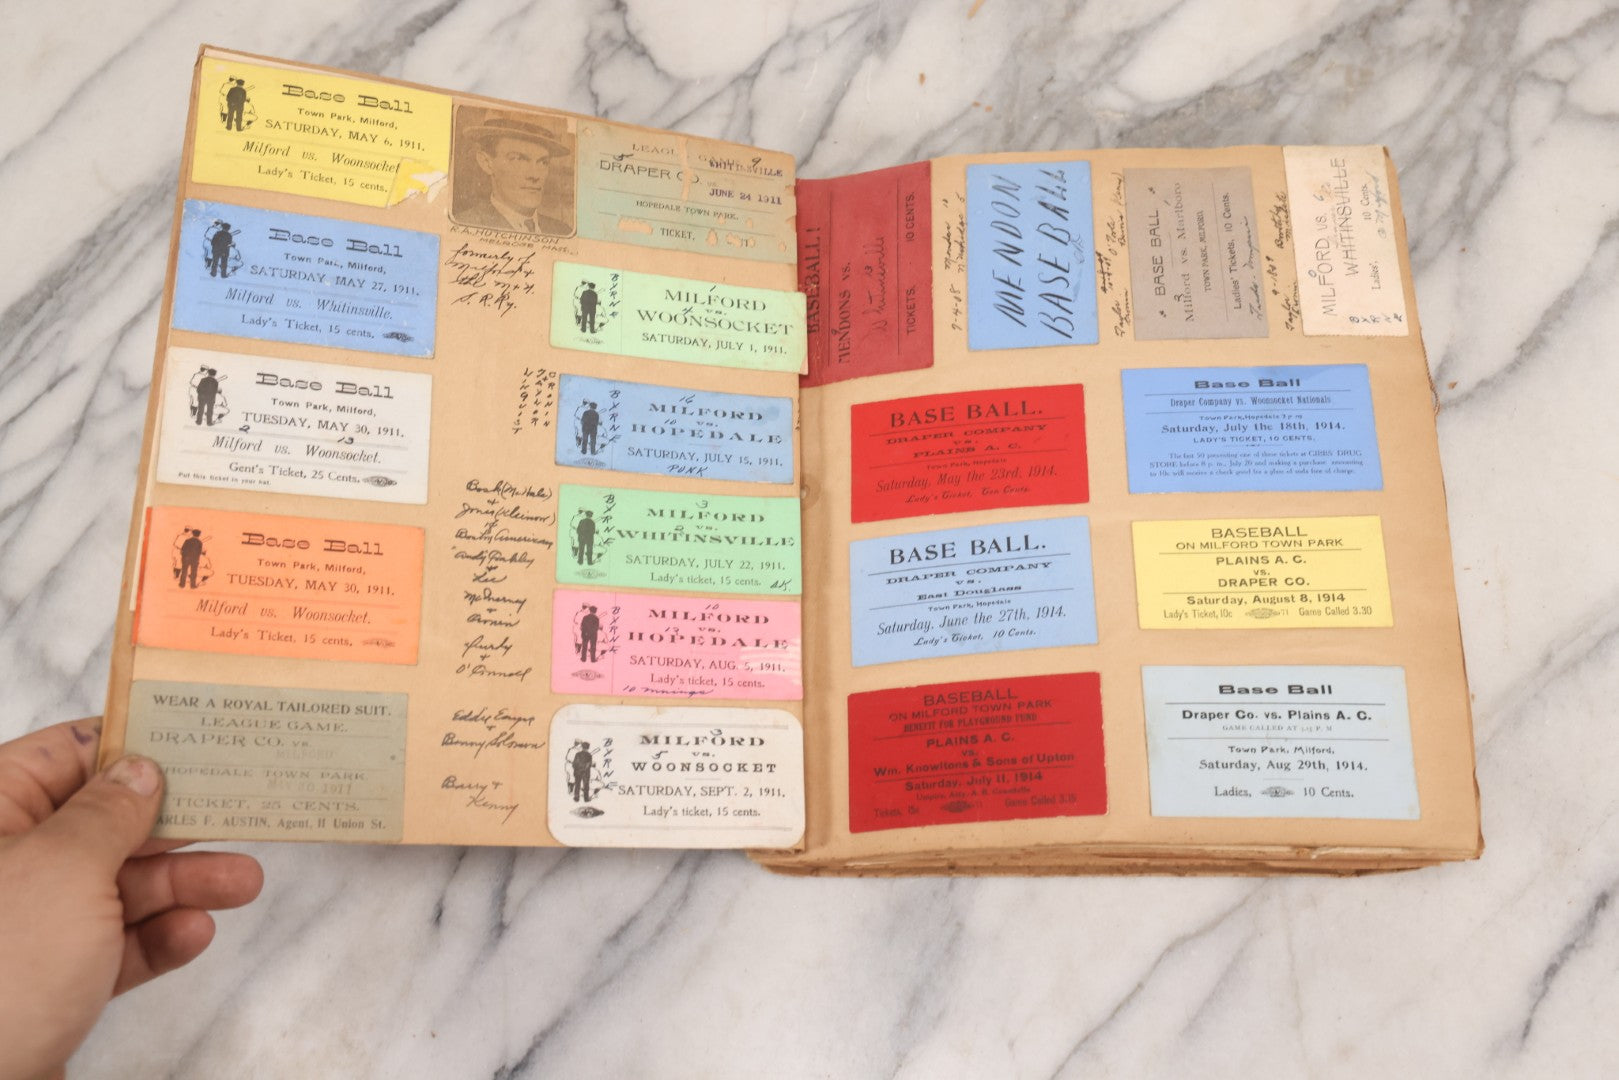 Base Ball
Town Park, Milford,
SATURDAY, MAY 6, 1911.
Milford vs. Woonsocket
Lady's Ticket, 15 cents.
Base Ball
Town Park, Milford,
SATURDAY, MAY 27, 1911.
Milford vs. Whitinsville.
Lady's Ticket, 15 cents.
Base Ball
Town Park, Milford,
TUESDAY, MAY 30, 1911.
2 13
Milford vs. Woonsocket.
Gent's Ticket, 25 Cents.
Put this ticket in your hat.
Base Ball
Town Park, Milford,
TUESDAY, MAY 30, 1911.
Milford vs. Woonsocket.
Lady's Ticket, 15 cents.
WEAR A ROYAL TAILORED SUIT.
LEAGUE GAME.
DRAPER CO. vs.
MILFORD
HOPEDALE TOWN PARK
MAY 30 1911
TICKET, 25 CENTS.
ARLES F. AUSTIN, Agent, 11 Union St.
R.A. HUTCHINSON
MELROSE MASS.
formerly of
Milford +
the M + U.
S. R. Ry.
LEAGUE GAME 9
5 WHITINSVILLE
DRAPER CO. vs.
JUNE 24 1911
HOPEDALE TOWN PARK.
TICKET,
BYRNE
1
MILFORD
vs.
4
WOONSOCKET
SATURDAY, JULY 1, 1911.
BYRNE
16
MILFORD
10 vs.
HOPEDALE
SATURDAY, JULY 15, 1911.
PUNK
BYRNE
3
MILFORD
2 vs.
WHITINSVILLE
SATURDAY, JULY 22, 1911.
Lady's ticket, 15 cents.
BYRNE
10
MILFORD
13 vs.
HOPEDALE
SATURDAY, AUG. 5, 1911.
Lady's ticket, 15 cents.
10 innings
BYRNE
3
MILFORD
5 vs.
WOONSOCKET
SATURDAY, SEPT. 2, 1911.
Lady's ticket, 15 cents.
+
Lee
McInerney
+
Cronin
Purdy
+
O'Connell
+
Benny Solomon
Barry +
Kenny
BASEBALL!
MENDONS vs.
TICKETS. 10 CENTS.
9-4-08
MENDON
BASE BALL
BASE BALL
Milford vs. Marlboro
TOWN PARK, MILFORD.
Ladies' Tickets. 10 Cents.
MILFORD VS.
WHITINSVILLE
Ladies', 10 Cents.
BASE BALL.
DRAPER COMPANY
vs.
PLAINS A. C.
Town Park, Hopedale
Saturday, May the 23rd, 1914.
Lady's Ticket, Ten Cents.
BASE BALL.
DRAPER COMPANY
vs.
East Douglass
Town Park, Hopedale
Saturday, June the 27th, 1914.
Lady's Ticket, 10 Cents.
BASEBALL
ON MILFORD TOWN PARK
BENEFIT FOR PLAYGROUND FUND
PLAINS A. C.
vs.
Wm. Knowltons & Sons of Upton
Saturday, July 11, 1914
Tickets, 15c Game Called 3.15
Base Ball
Draper Company vs. Woonsocket Nationals
Town Park, Hopedale 3 p m
Saturday, July the 18th, 1914.
LADY'S TICKET, 10 CENTS,
The last 50 presenting one of these tickets at GIBBS DRUG
STORE before 8 p. m., July 20 and making a purchase amounting
to 10c will receive a check good for a glass of soda free of charge.
BASEBALL
ON MILFORD TOWN PARK
PLAINS A. C.
vs.
DRAPER CO.
Saturday, August 8, 1914
Lady's Ticket, 10c Game Called 3.30
Base Ball
Draper Co. vs. Plains A. C.
GAME CALLED AT 3.15 P. M
Town Park, Milford,
Saturday, Aug 29th, 1914.
Ladies, 10 Cents.